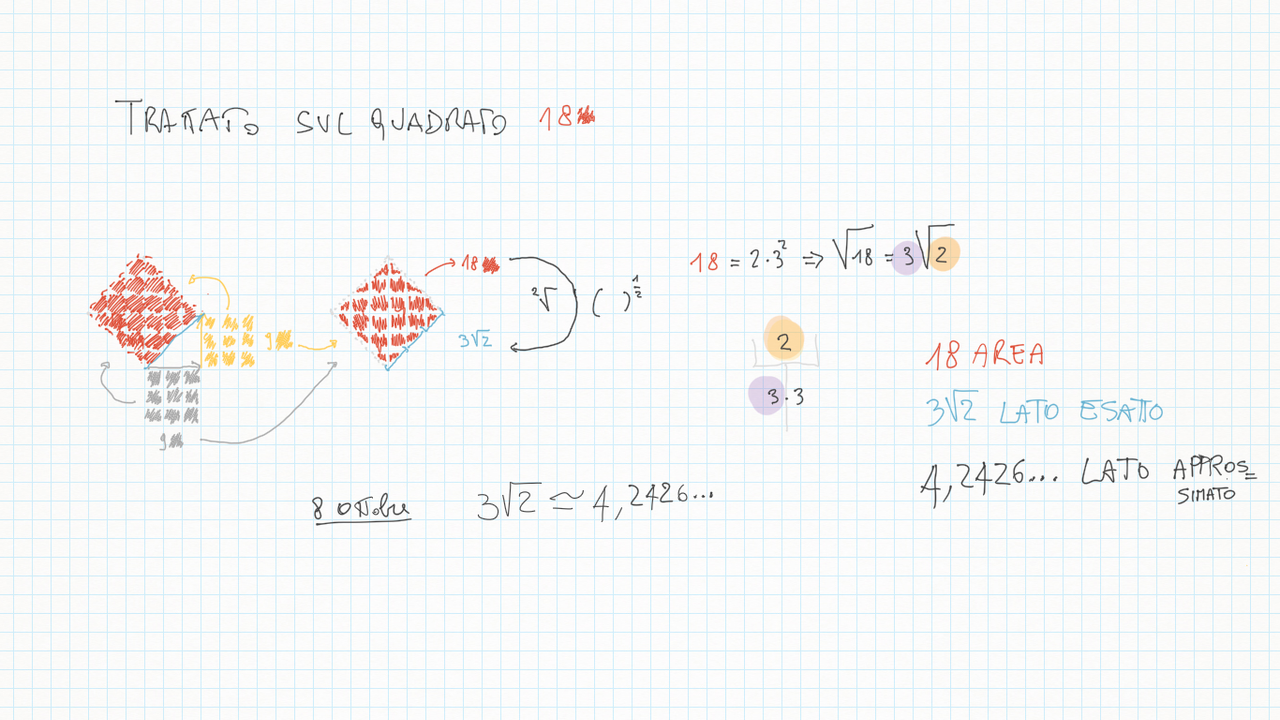 TRATTATO SUL QUADRATO 18
18
²√ ( )^½
3√2
9
9
18 = 2·3² ⇒ √18 = 3√2
2
3·3
18 AREA
3√2 LATO ESATTO
4,2426... LATO APPROS=
SIMATO
8 ottobre
3√2 ≃ 4,2426...